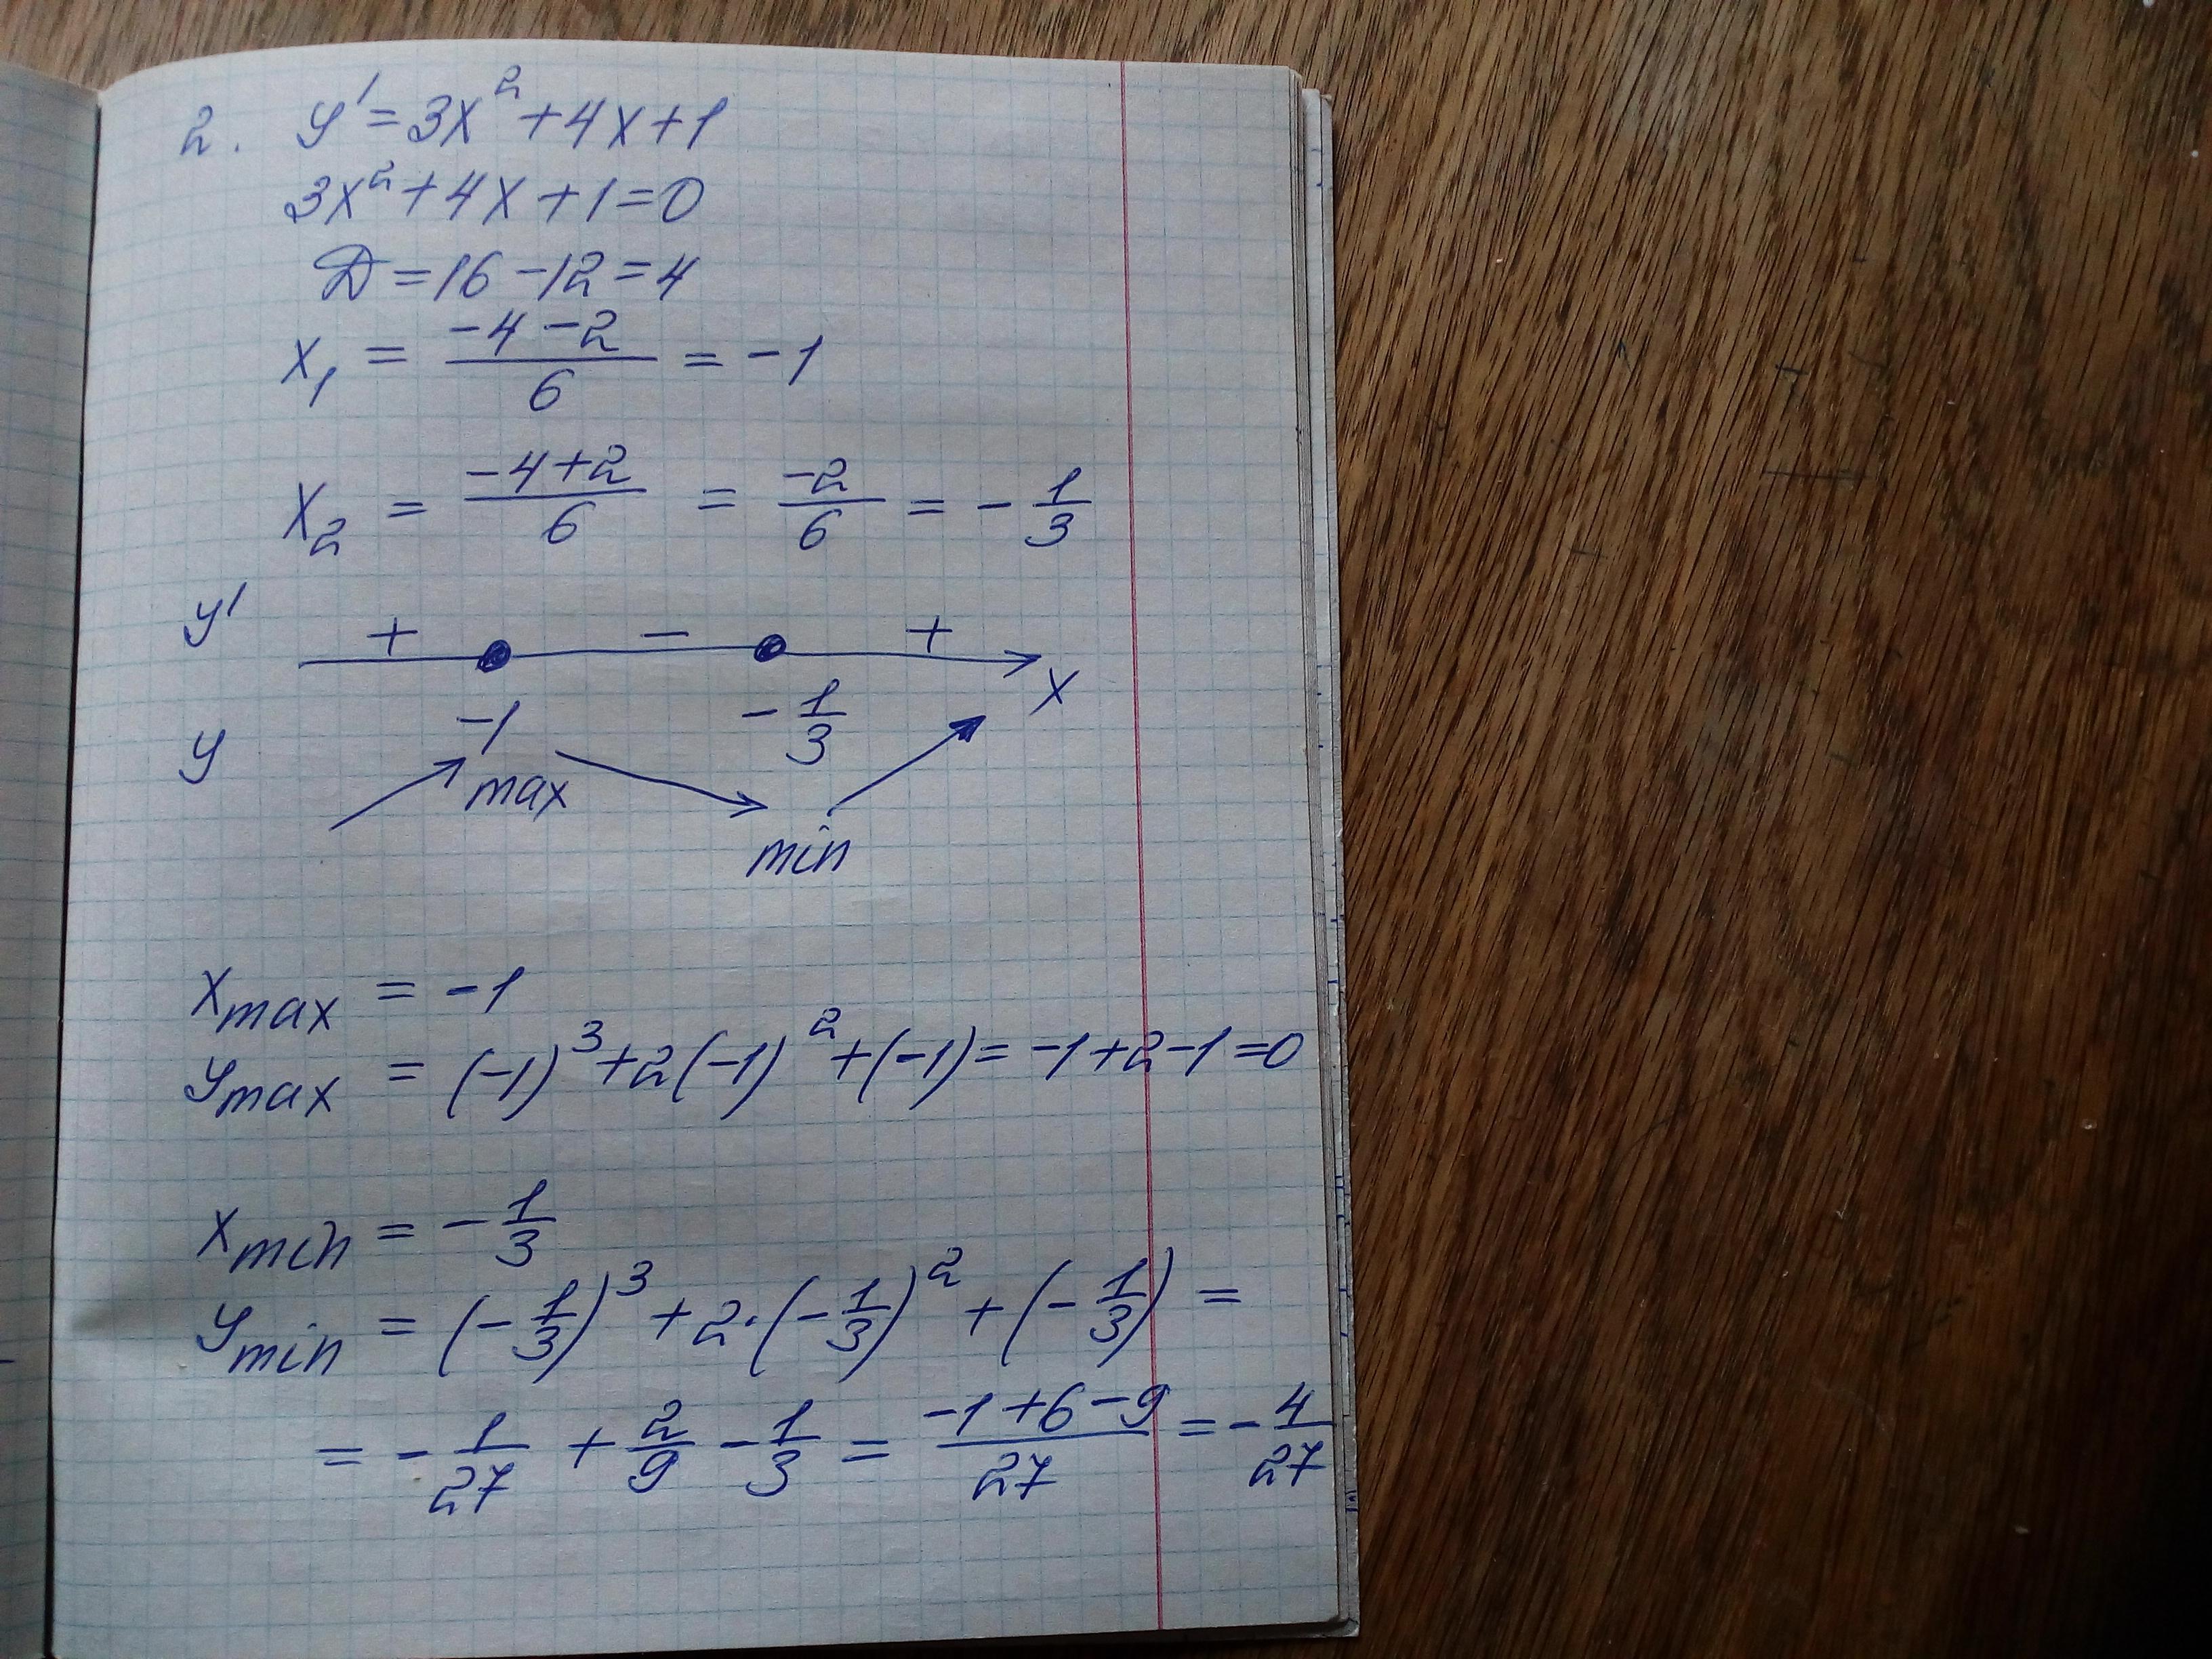 2. y' = 3x² + 4x + 1
3x² + 4x + 1 = 0
D = 16 - 12 = 4
x₁ = (-4 - 2)/6 = -1
x₂ = (-4 + 2)/6 = -2/6 = -1/3
y' + - + x
-1 -1/3
y max min
x_max = -1
y_max = (-1)³ + 2(-1)² + (-1) = -1 + 2 - 1 = 0
x_min = -1/3
y_min = (-1/3)³ + 2·(-1/3)² + (-1/3) =
= -1/27 + 2/9 - 1/3 = (-1 + 6 - 9)/27 = -4/27